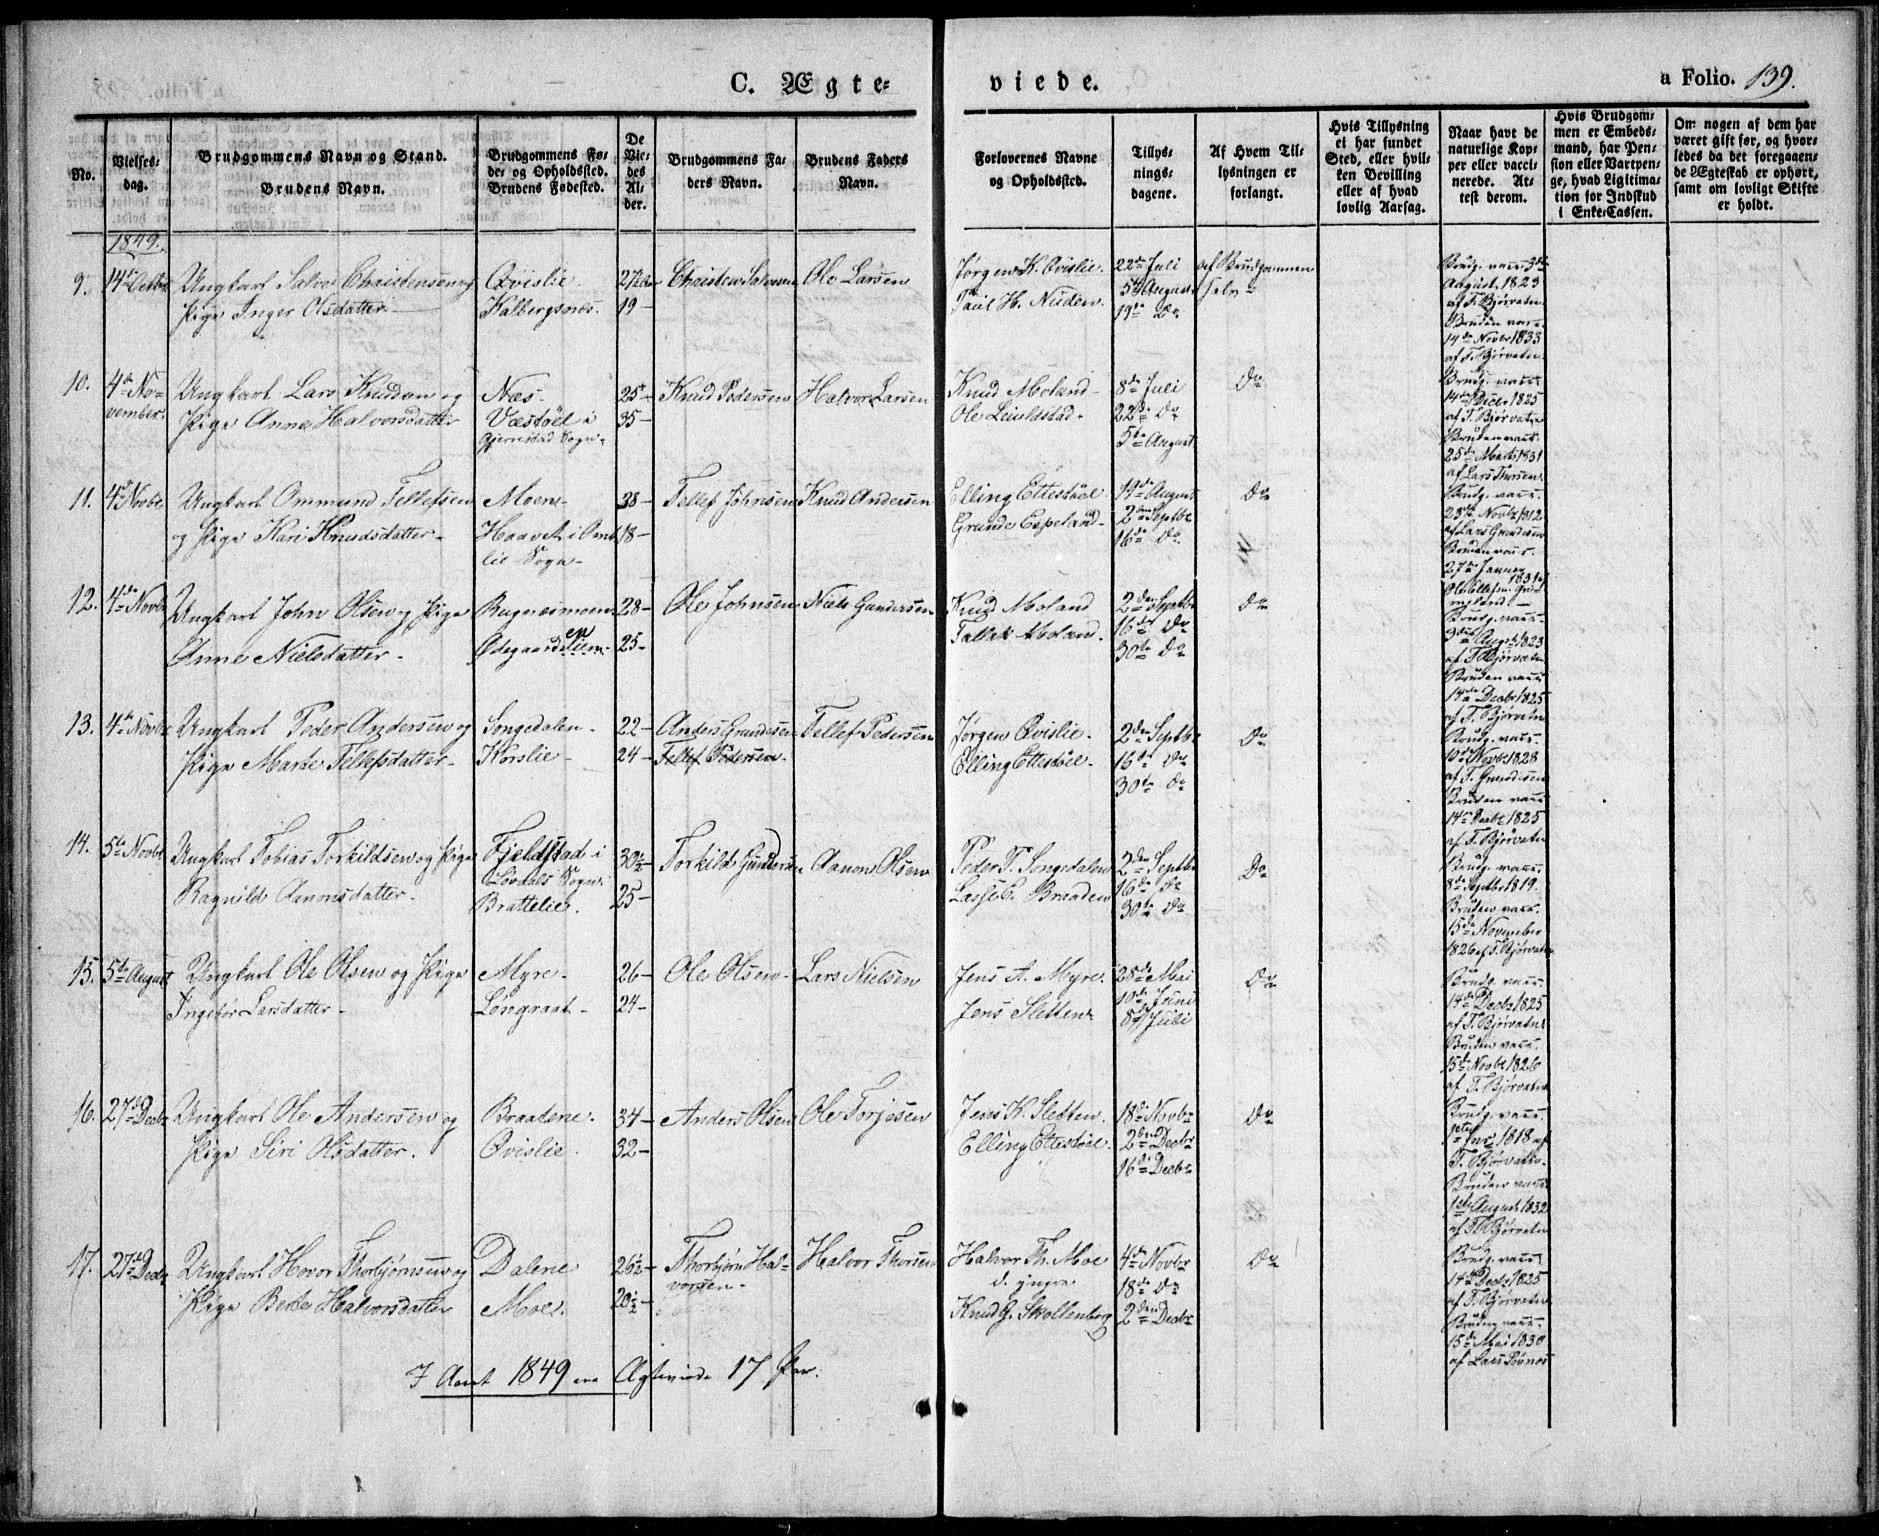 C. Ægte-
viede.
a Folio. 139.
No.
Vielses-
dag.
Brudgommens Navn og Stand.
Brudens Navn.
Brudgommens Fø-
de- og Opholdssted.
Brudens Fødested.
De
Vie-
des
Al-
der.
Brudgommens Fa-
ders Navn.
Brudens Faders
Navn.
Forlovernes Navne
og Opholdssted.
Tillys-
nings-
dagene.
Af Hvem Til-
lysningen er
forlangt.
Hvis Tillysning
ei har fundet
Sted, eller hvil-
ken Bevilling
eller af hvad
lovlig Aarsag.
Naar havt de
naturlige Kop-
per eller vacci-
nerede. At-
test derom.
Hvis Brudgom-
men er Embeds-
mand, har Pen-
sion eller Vartpen-
ge, hvad Ligitima-
tion for Indskud
i Enke-Cassen.
Om nogen af dem har
været gift før, og hvor-
ledes da det foregaaen-
de Ægteskab er ophørt,
samt om lovligt Skifte
er holdt.
1849.
9. 14de Octbr Ungkarl Salve Christensen og Qvislie 27½ Aar Christen Salvesen Ole Larsen Jørgen K. Qvislie. 22de Juli af Brudgommen
Pige Inger Olsdatter Kalbergsnes. 19 — Paul H. Nuden. 5te August selv
19de Do
Brudg. vacc. 3die
August 1823
af T. Bjørvatn
Bruden vacc.
14de Novbr 1833
af T. Bjørvatn
10. 4de No- Ungkarl Lars Knudsen og Næs. 25 — Knud Pedersen Halvor Larsen Knud Moland 8de Juli Do
vember. Pige Anne Halvorsdatter Væstøel i 35 — Ole Leuldstad 22de Do
Gjerrestad Sogn 5te August
Brudg. vacc.
14de Decbr 1825
af T. Bjørvatn
Bruden vacc.
25de Marts 1831
af Lars Thorsen
11. 4de Novbr Ungkarl Ommund Tellefsen Moen 38 — Tellef Johnsen Knud Andersen Elling Ettestøel 19de August Do
og Pige Kari Knudsdatter Haavet i Om- 18 — Grunde Espeland 2den Septbr
lie Sogn 16de Do
Brudg. vacc.
23de Novbr 1812
af Lars Gundersen
Bruden vacc.
27de Januar
1831 af
Ole Ellefsen
12. 4de Novbr Ungkarl John Olsen og Pige Bugnesmoen 28 — Ole Johnsen Niels Gundersen Knud Moland 2den Septbr Do
Anne Nielsdatter Ødegaardslien 25 Tallak Moland. 16de Do
30te Do
Brudg. vacc.
3die August 1823
af T. Bjørvatn
Bruden vacc.
14de Decbr 1825
af T. Bjørvatn
13. 4de Novbr Ungkarl Peder Andersen og Songedalen 22 — Anders Gundersen Tellef Pedersen Jørgen Qvislie. 2den Septbr Do
Pige Marte Tellefsdatter Korslie 24 — Tellef Pedersen Elling Ettestøel 16de Do
30te Do
Brudg. vacc.
10de Novbr 1828
af T. Gundersen
Bruden vacc.
14de Decbr 1825
af T. Bjørvatn
14. 5te Novbr Ungkarl Tobias Torkildsen og Pige Fjeldstad i 30½ Torkild Gundersen Aanon Olsen Peder T. Songedalen 2den Septbr Do
Ragnild Aanonsdatter. Løvdals Sogn. Lasse C. Braaden 16de Do
Brattelie. 25 — 30te Do
Brudg. vacc.
8de Septbr 1819.
Bruden vacc.
15de November
1826 af T. Bjørvatn
15. 5te August Ungkarl Ole Olsen og Pige Myre. 26 — Ole Olsen Lars Nielsen Jens A. Myre. 28de Mai Do
Ingebor Larsdatter Longraat 24 — Jens Sletten 10de Juni
8de Juli
Brudg. vacc.
14de Decbr 1825
af T. Bjørvatn
Bruden vacc.
15de Novbr 1826
af T. Bjørvatn
16. 27de Decbr Ungkarl Ole Andersen og Braatene. 34 — Anders Olsen Ole Torjesen Jens K. Sletten. 18de Novbr Do
Pige Siri Olsdatter. Qvislie. 32 — Elling Ettestøel. 2den Decbr
16de Decbr
Brudg. vacc.
1ste 1818 af
T. Bjørvatn.
Bruden vacc.
1ste August 1832
af T. Bjørvatn
17. 27de Decbr Ungkarl Hovor Thorbjørnsen og Dalene 26½ — Thorbjørn Hal- Halvor Thorsen Halvor Th. Moe 4de Novbr Do
vorsen d. yngre 18de Do
Pige Berte Halvorsdatter Moe. 20½ — Knud G. Skollenborg 2den Decbr
Brudg. vacc.
14de Decbr 1825
af T. Bjørvatn
Bruden vacc.
15de Mai 1830
af Lars
I Aaret 1849 ere Ægteviede 17 Par.